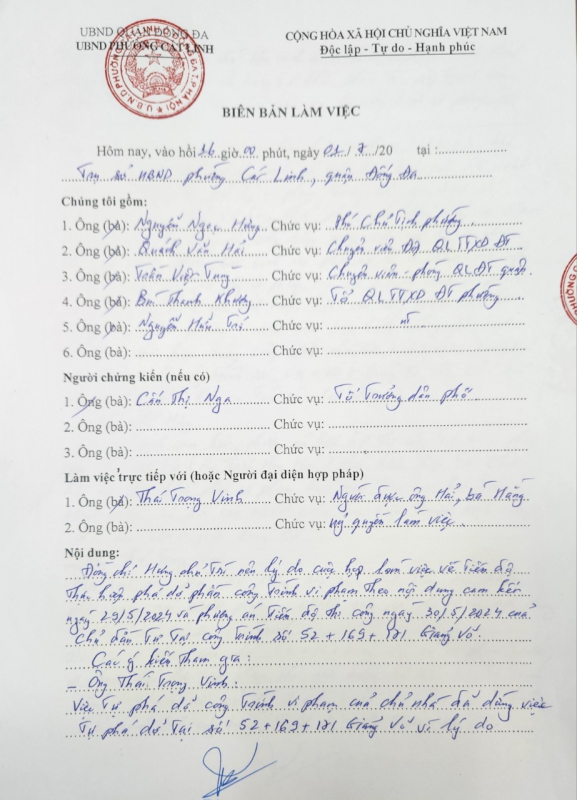 UBND QUẬN ĐỐNG ĐA
UBND PHƯỜNG CÁT LINH
CỘNG HÒA XÃ HỘI CHỦ NGHĨA VIỆT NAM
Độc lập - Tự do - Hạnh phúc
BIÊN BẢN LÀM VIỆC
Hôm nay, vào hồi 16 giờ 00 phút, ngày 01/7/20 tại :
Trụ sở UBND phường Cát Linh, quận Đống Đa
Chúng tôi gồm:
1. Ông (bà): Nguyễn Ngọc Hưng Chức vụ: Phó Chủ tịch phường
2. Ông (bà): Quách Văn Hải Chức vụ: Chuyên viên Đội QLTTXD ĐT
3. Ông (bà): Trần Việt Chức vụ: Chuyên viên phòng QLĐT quận
4. Ông (bà): Bùi Thanh Khương Chức vụ: Tổ QLTTXD ĐT phường
5. Ông (bà): Nguyễn Hữu Trí Chức vụ: nt
6. Ông (bà): Chức vụ:
Người chứng kiến (nếu có)
1. Ông (bà): Cấn Thị Nga Chức vụ: Tổ Trưởng dân phố
2. Ông (bà): Chức vụ:
3. Ông (bà): Chức vụ:
Làm việc trực tiếp với (hoặc Người đại diện hợp pháp)
1. Ông (bà): Thái Trọng Vinh Chức vụ: Người được ông Hải, bà Hằng
2. Ông (bà): Chức vụ: uỷ quyền làm việc
Nội dung:
Đồng chí Hưng chủ trì nêu lý do cuộc họp làm việc về tiến độ
thực hiện phá dỡ phần công trình vi phạm theo nội dung cam kết
ngày 29/5/2024 và phương án tiến độ thi công ngày 30/5/2024 của
Chủ đầu tư tại công trình số 52+169+171 Giảng Võ.
Các ý kiến tham gia:
- Ông Thái Trọng Vinh:
Việc tự phá dỡ công trình vi phạm của chủ nhà đã dừng việc
tự phá dỡ tại số 52+169+171 Giảng Võ vì lý do